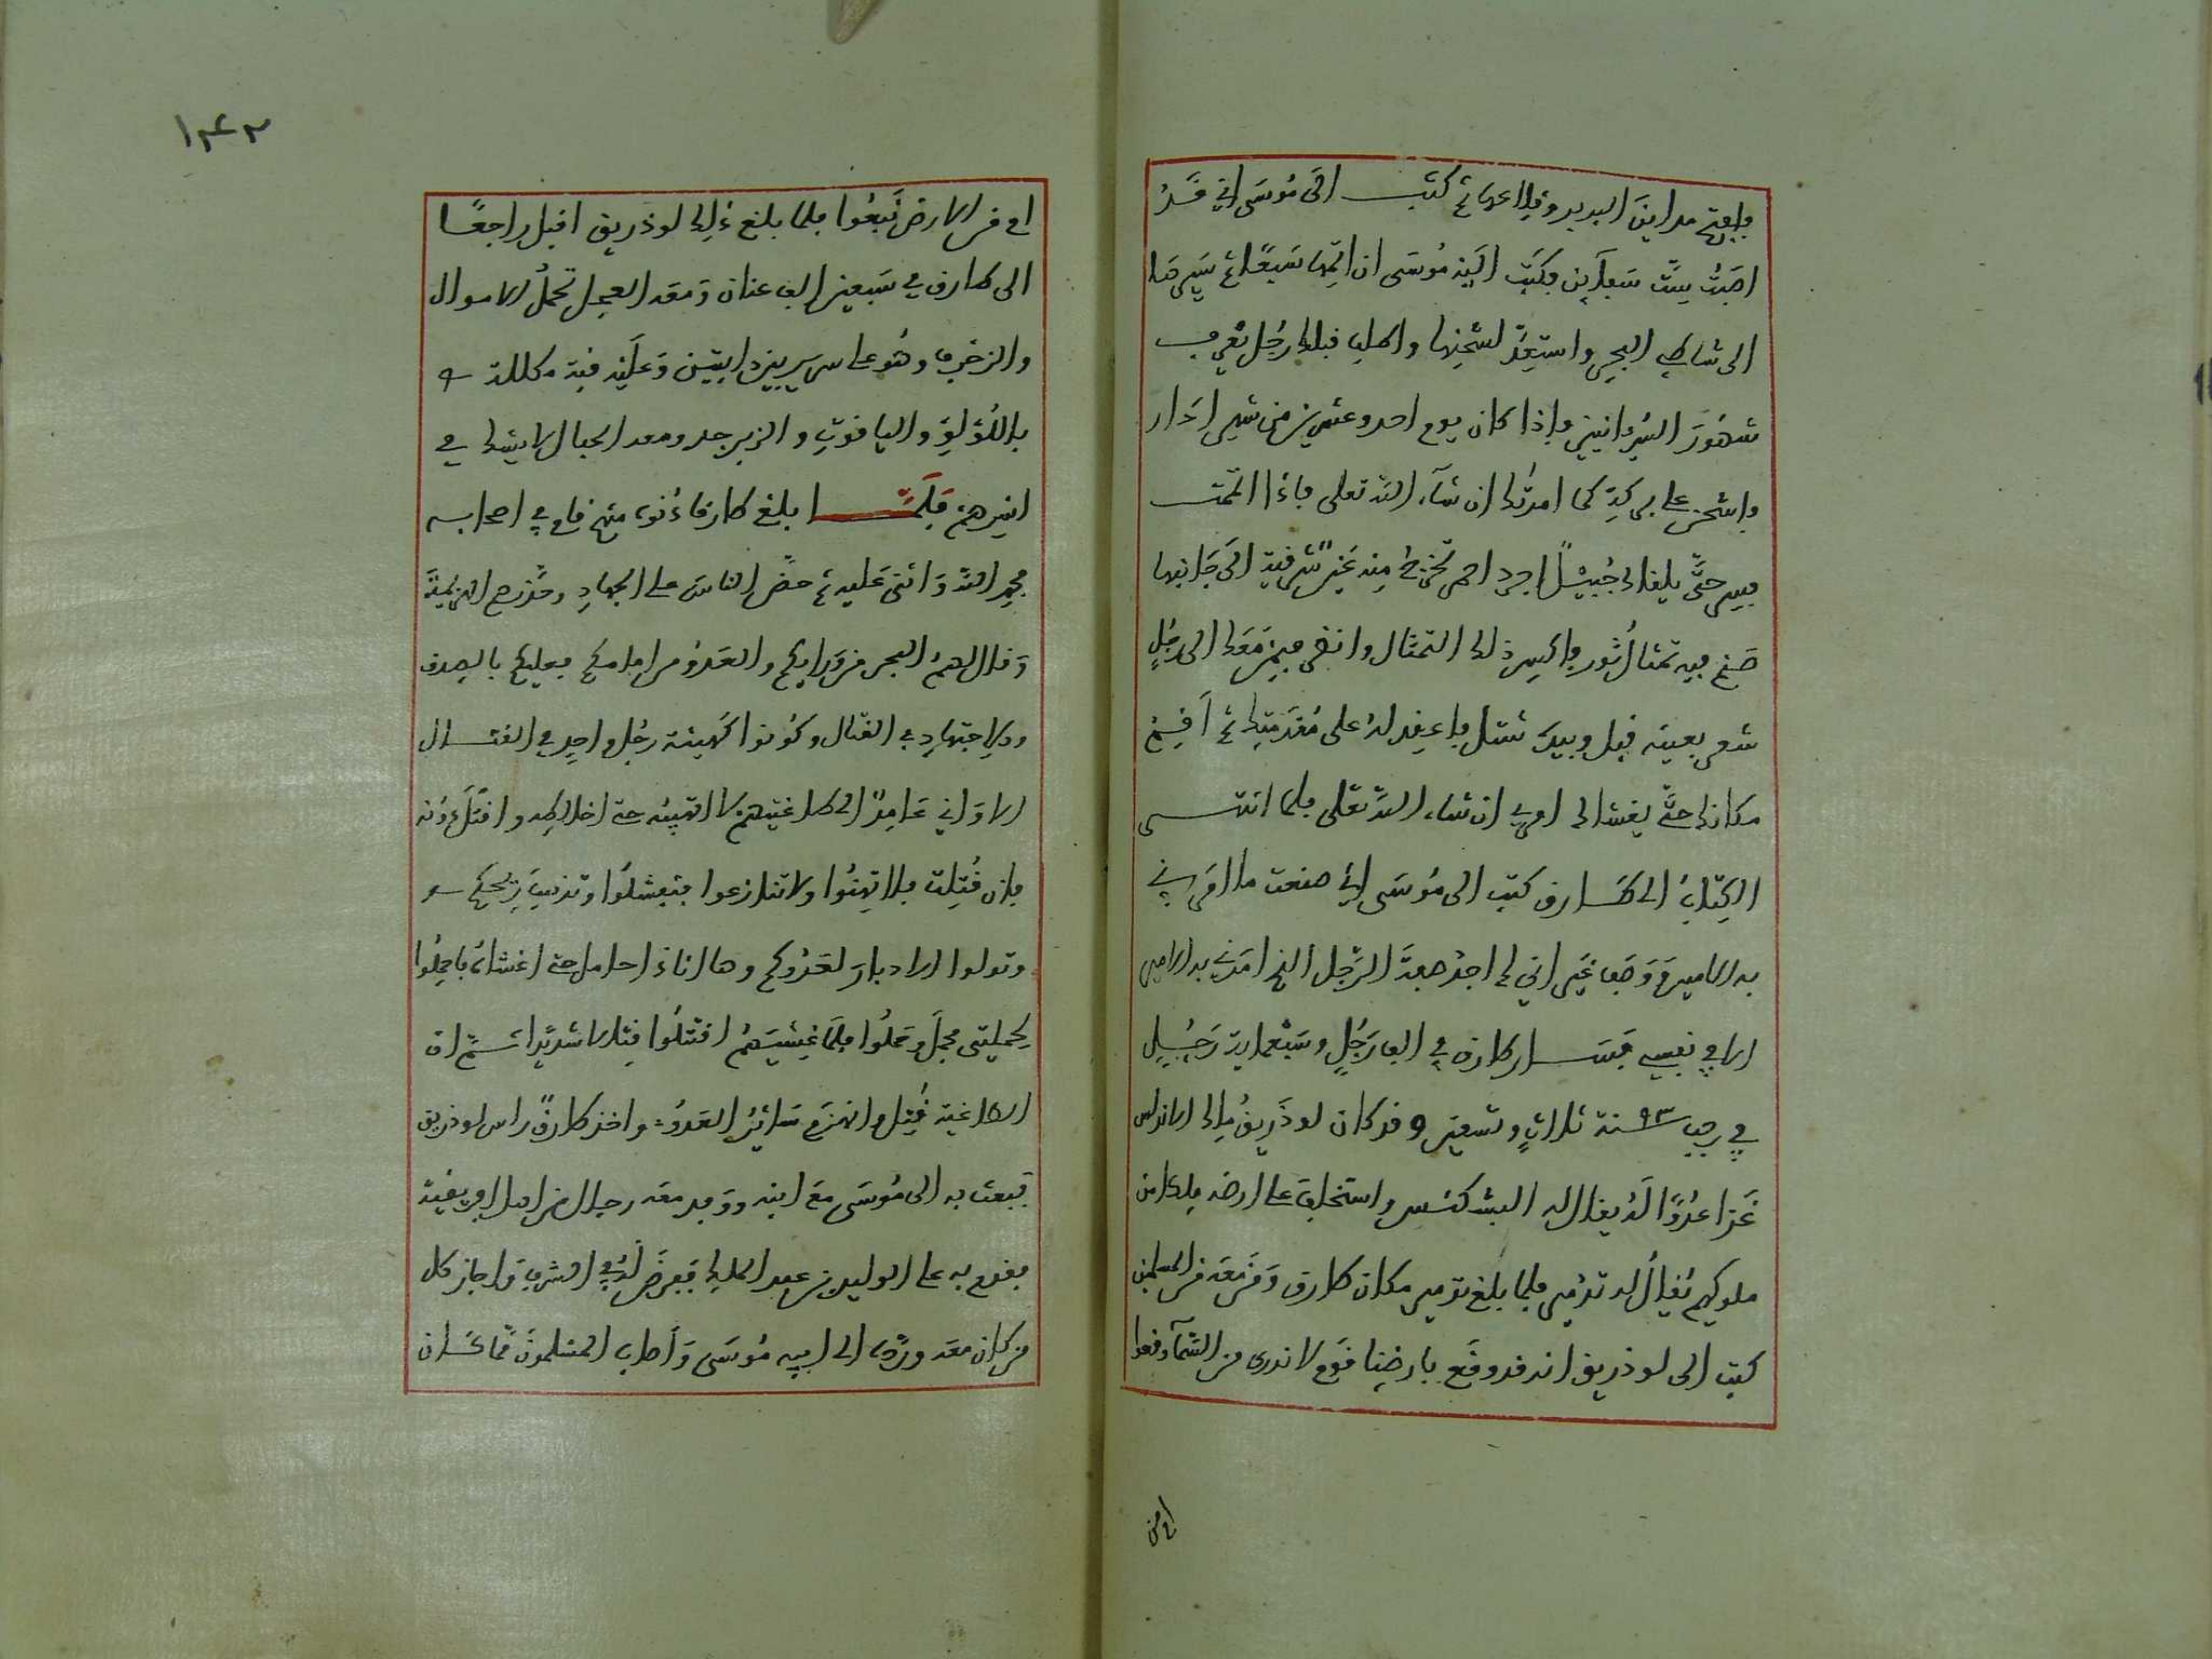 وافتتح مداين البربر وقلاعها ثم كتب الى مُوسَى اني قَدْ
اصَبْتُ سِتَّ سَفاين فكتب اليه مُوسَى ان اتمها سَبعًا ثم سَيِّر بها
الى شاطي البحر واستعِدَّ لشحنِها واطلب قبلك رَجُلا يعرف
شهُورَ السُّريانيين فاذا كان يوم احد وعشرين من شهر اذار
فاشحن على بركة كما امرتك ان شاء الله تعلى فاذا اتممت
فسر حتَّى يلقاك جُبيْلٌ اجرد احمر تخرج منه عَين شرقية الى جَانبها
صَنم فيه تمثال ثور فاكسر ذلك التمثال وانظر فيمن معَك الى رجُلٍ
اشعر بعينه قبل وبيده شلل فاعقد له على مُقدَّمتِك ثم اَقِمْ
مكانك حتَّى يغشاك امري ان شاء الله تعلى فلما انتهى
الكِتابُ الى طَارق كتب الى مُوسَى اني صنعت ما امَرني
به الامير ووَصَف غير اني لم اجدْ صفةَ الرَّجل الذي امَرني به الامير
الا في نفسي فسَار طارق في الف رَجُلٍ وسَبْعماية رَجُل
في رجب ٩٣ سنة ثلاثٍ وتسعين وقد كان لوذَريقُ ملك الاندلس
غَزا عدُوًّا لَهُ يقال له البشكنس واستخلف على ارضه ملكا من
ملوكهم يُقالُ له تُدْمير فلما بلغ تدمير مكان طارق وَمَن مَعَه من المسلمين
كتب الى لوذريق انه قد وقَع بارضِنا قوم لا ندرى من السَّمآء وقعوا
ام من
١٤٣
ام من الارض نَبعُوا فلما بلغ ذلك لوذريق اقبل راجعًا
الى طارق في سَبعين الف عنان ومَعَه العجل تحملُ الاموال
والزخرف وهُو على سرير بين دابتين وعَلَيه قبة مكللة
باللُّؤلؤ والياقوتِ والزبرجد ومعه الحبال لا يشك في
اسْرهمْ فلَمَّا بلغ طارقا دُنوه منهم قام في اصحابه
فحمد الله وَاثنى عَليه ثم حضَّ الناسَ على الجهادِ وحذرهم الهزيمة
وَقال لهمُ البحر من وَرايكم والعَدُوُّ من امامكم فعليكم بالصدق
والاجتهادِ في القتال وكُونوا كهيئة رجُل واحِد في القتال
الا وَاني عَامدٌ الى طاغيتهمْ لا اتهيبُه حتى اخالطه او اقتَلَ دُونه
فان قُتِلت فلا تَهِنُوا ولا تنازعوا فتفشلُوا وتذهبَ ريحكم
وتولوا الادبارَ لعَدُوكم وها انا ذا حامل حتى اغشاهُ فاحمِلُوا
بحملتى فحمَل وحَملُوا فلَمَّا غشيَهُمُ اقتتلُوا قِتالا شديدًا ثمَّ ان
الطاغية قُتِل وانهزَم سَائرُ العَدُوِّ واخذ طارقٌ راس لوذريق
فبعث به الى مُوسَى فبعث به مُوسَى معَ ابنه ووَفد معَه رجال من اهل افريقية
فقدم به على الوليد بن عبد الملك ففرضَ لهُ في الشرف وَاجاز كل
من كان معَه وردَّه الى ابيه مُوسَى وَاَصاب المُسلمونَ مما كَان